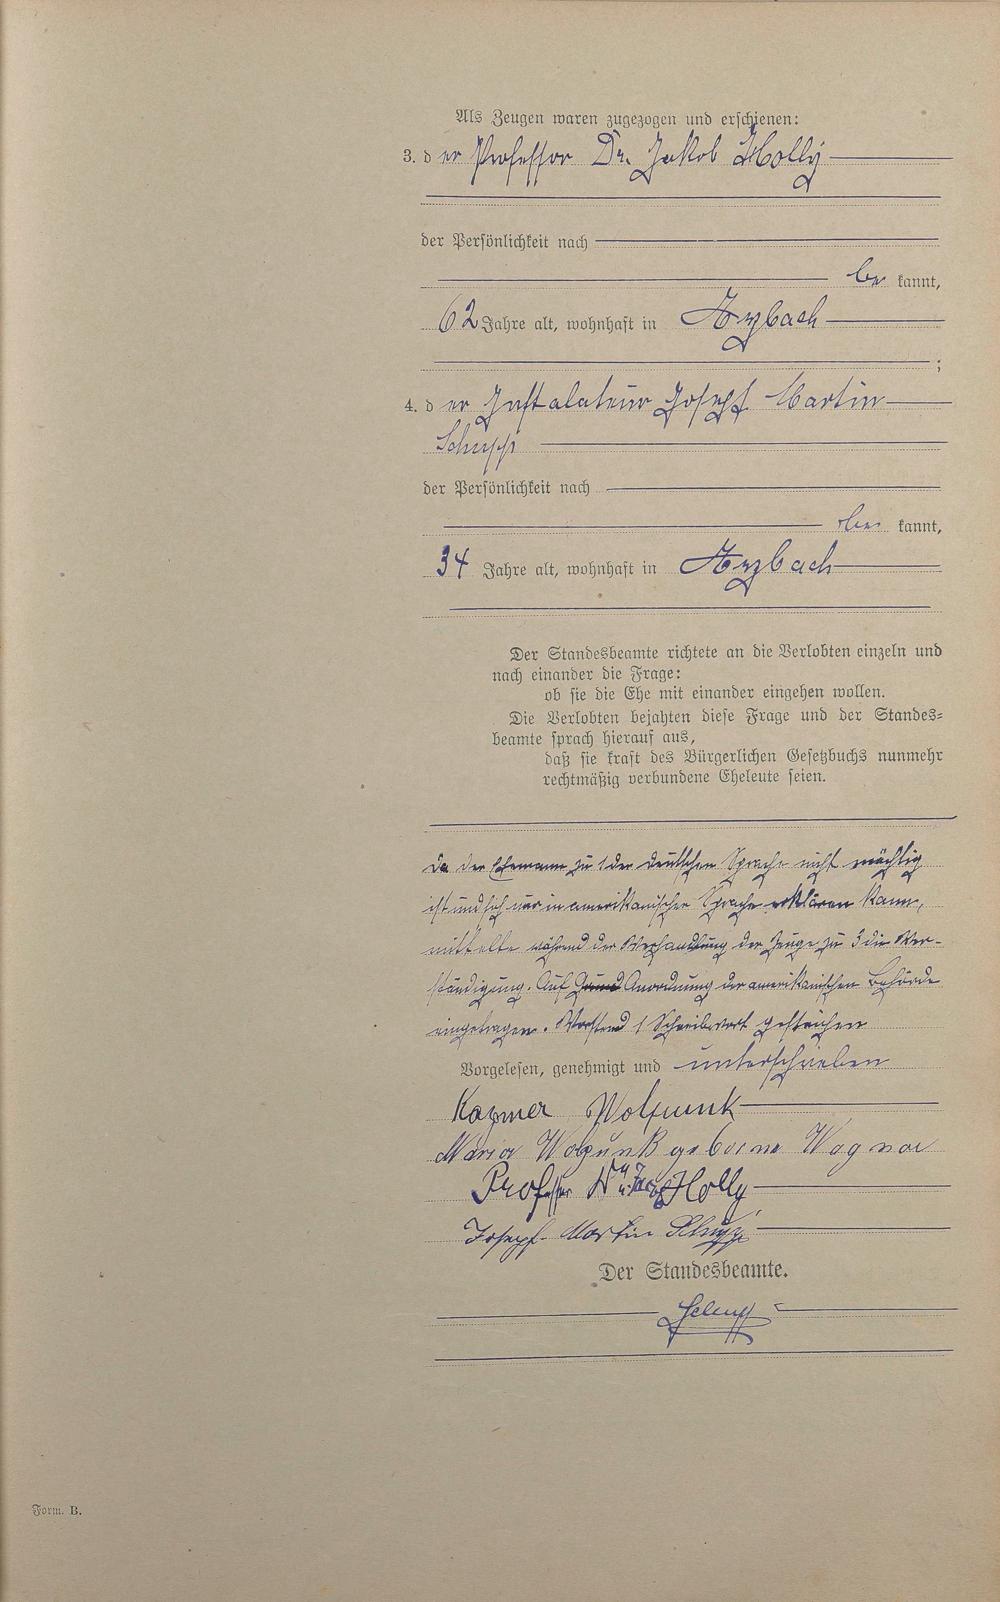 Als Zeugen waren zugezogen und erschienen:
3. d er Professor Dr. Jakob Holly
der Persönlichkeit nach
be kannt,
62 Jahre alt, wohnhaft in Arzbach
;
4. d er Installateur Josef Martin
Schupp
der Persönlichkeit nach
be kannt,
34 Jahre alt, wohnhaft in Arzbach
Der Standesbeamte richtete an die Verlobten einzeln und
nach einander die Frage:
ob sie die Ehe mit einander eingehen wollen.
Die Verlobten bejahten diese Frage und der Standes=
beamte sprach hierauf aus,
daß sie kraft des Bürgerlichen Gesetzbuchs nunmehr
rechtmäßig verbundene Eheleute seien.
Da der Ehemann zu 1 der deutschen Sprache nicht mächtig
ist und sich nur in amerikanischer Sprache erklären kann,
mittelte während der Verhandlung der Zeuge zu 3 die Ver-
ständigung. Auf Grund Anordnung der amerikanischen Behörde
eingetragen. Vorstend 1 Schreibwort gestrichen
Vorgelesen, genehmigt und unterschrieben
Kazmer Wolfunk
Maria Wolfunk geborene Wagner
Professor Holly
Josef Martin Schupp
Der Standesbeamte.
Schupp
Form. B.